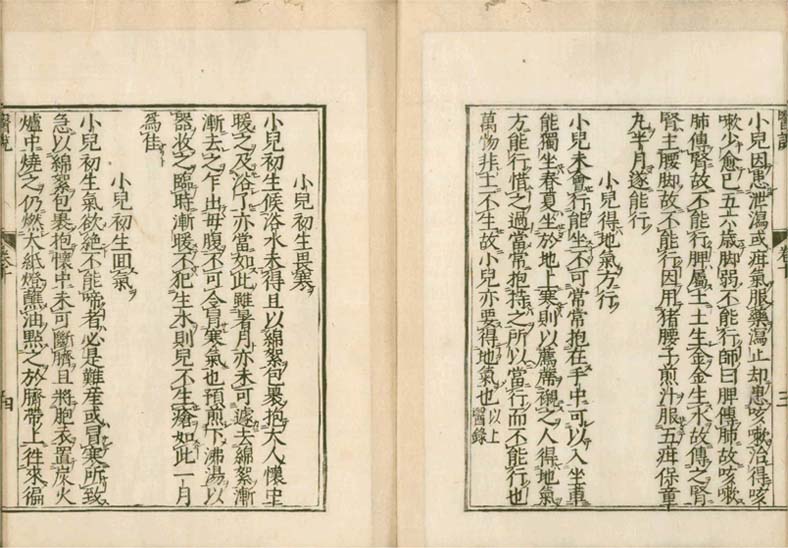 小兒因患泄瀉或疳氣服藥瀉止却患咳嗽治得咳
嗽少愈已五六歳脚弱不能行師曰脾傳肺故咳嗽
肺傳腎故不能行脾屬土土生金金生水故傳之腎
腎主腰脚故不能行因用猪腰子煎汁服五疳保童
九半月遂能行
小兒得地氣方行
小兒未會行能坐不可常常抱在手中可以入坐車
能獨坐春夏坐於地上寒則以薦席襯之人得地氣
方能行惜之過當常抱持之所以當行而不能行也
萬物非土不生故小兒亦要得地氣也以上醫錄
醫說
卷十
三
小兒初生畏寒
小兒初生候浴水未得且以綿絮包裹抱大人懷中
暖之及浴了亦當如此雖暑月亦未可遽去綿絮漸
漸去之乍出母腹不可令冒寒氣也預煎下沸湯以
器收之臨時漸暖不犯生水則兒不生瘡如此一月
為佳
小兒初生回氣
小兒初生氣欲絶不能啼者必是難產或冒寒所致
急以綿絮包裹抱懷中未可斷臍且將胞衣置炭火
爐中燒之仍燃大紙燈蘸油點之於臍帶上徃來徧
醫說
卷十
四